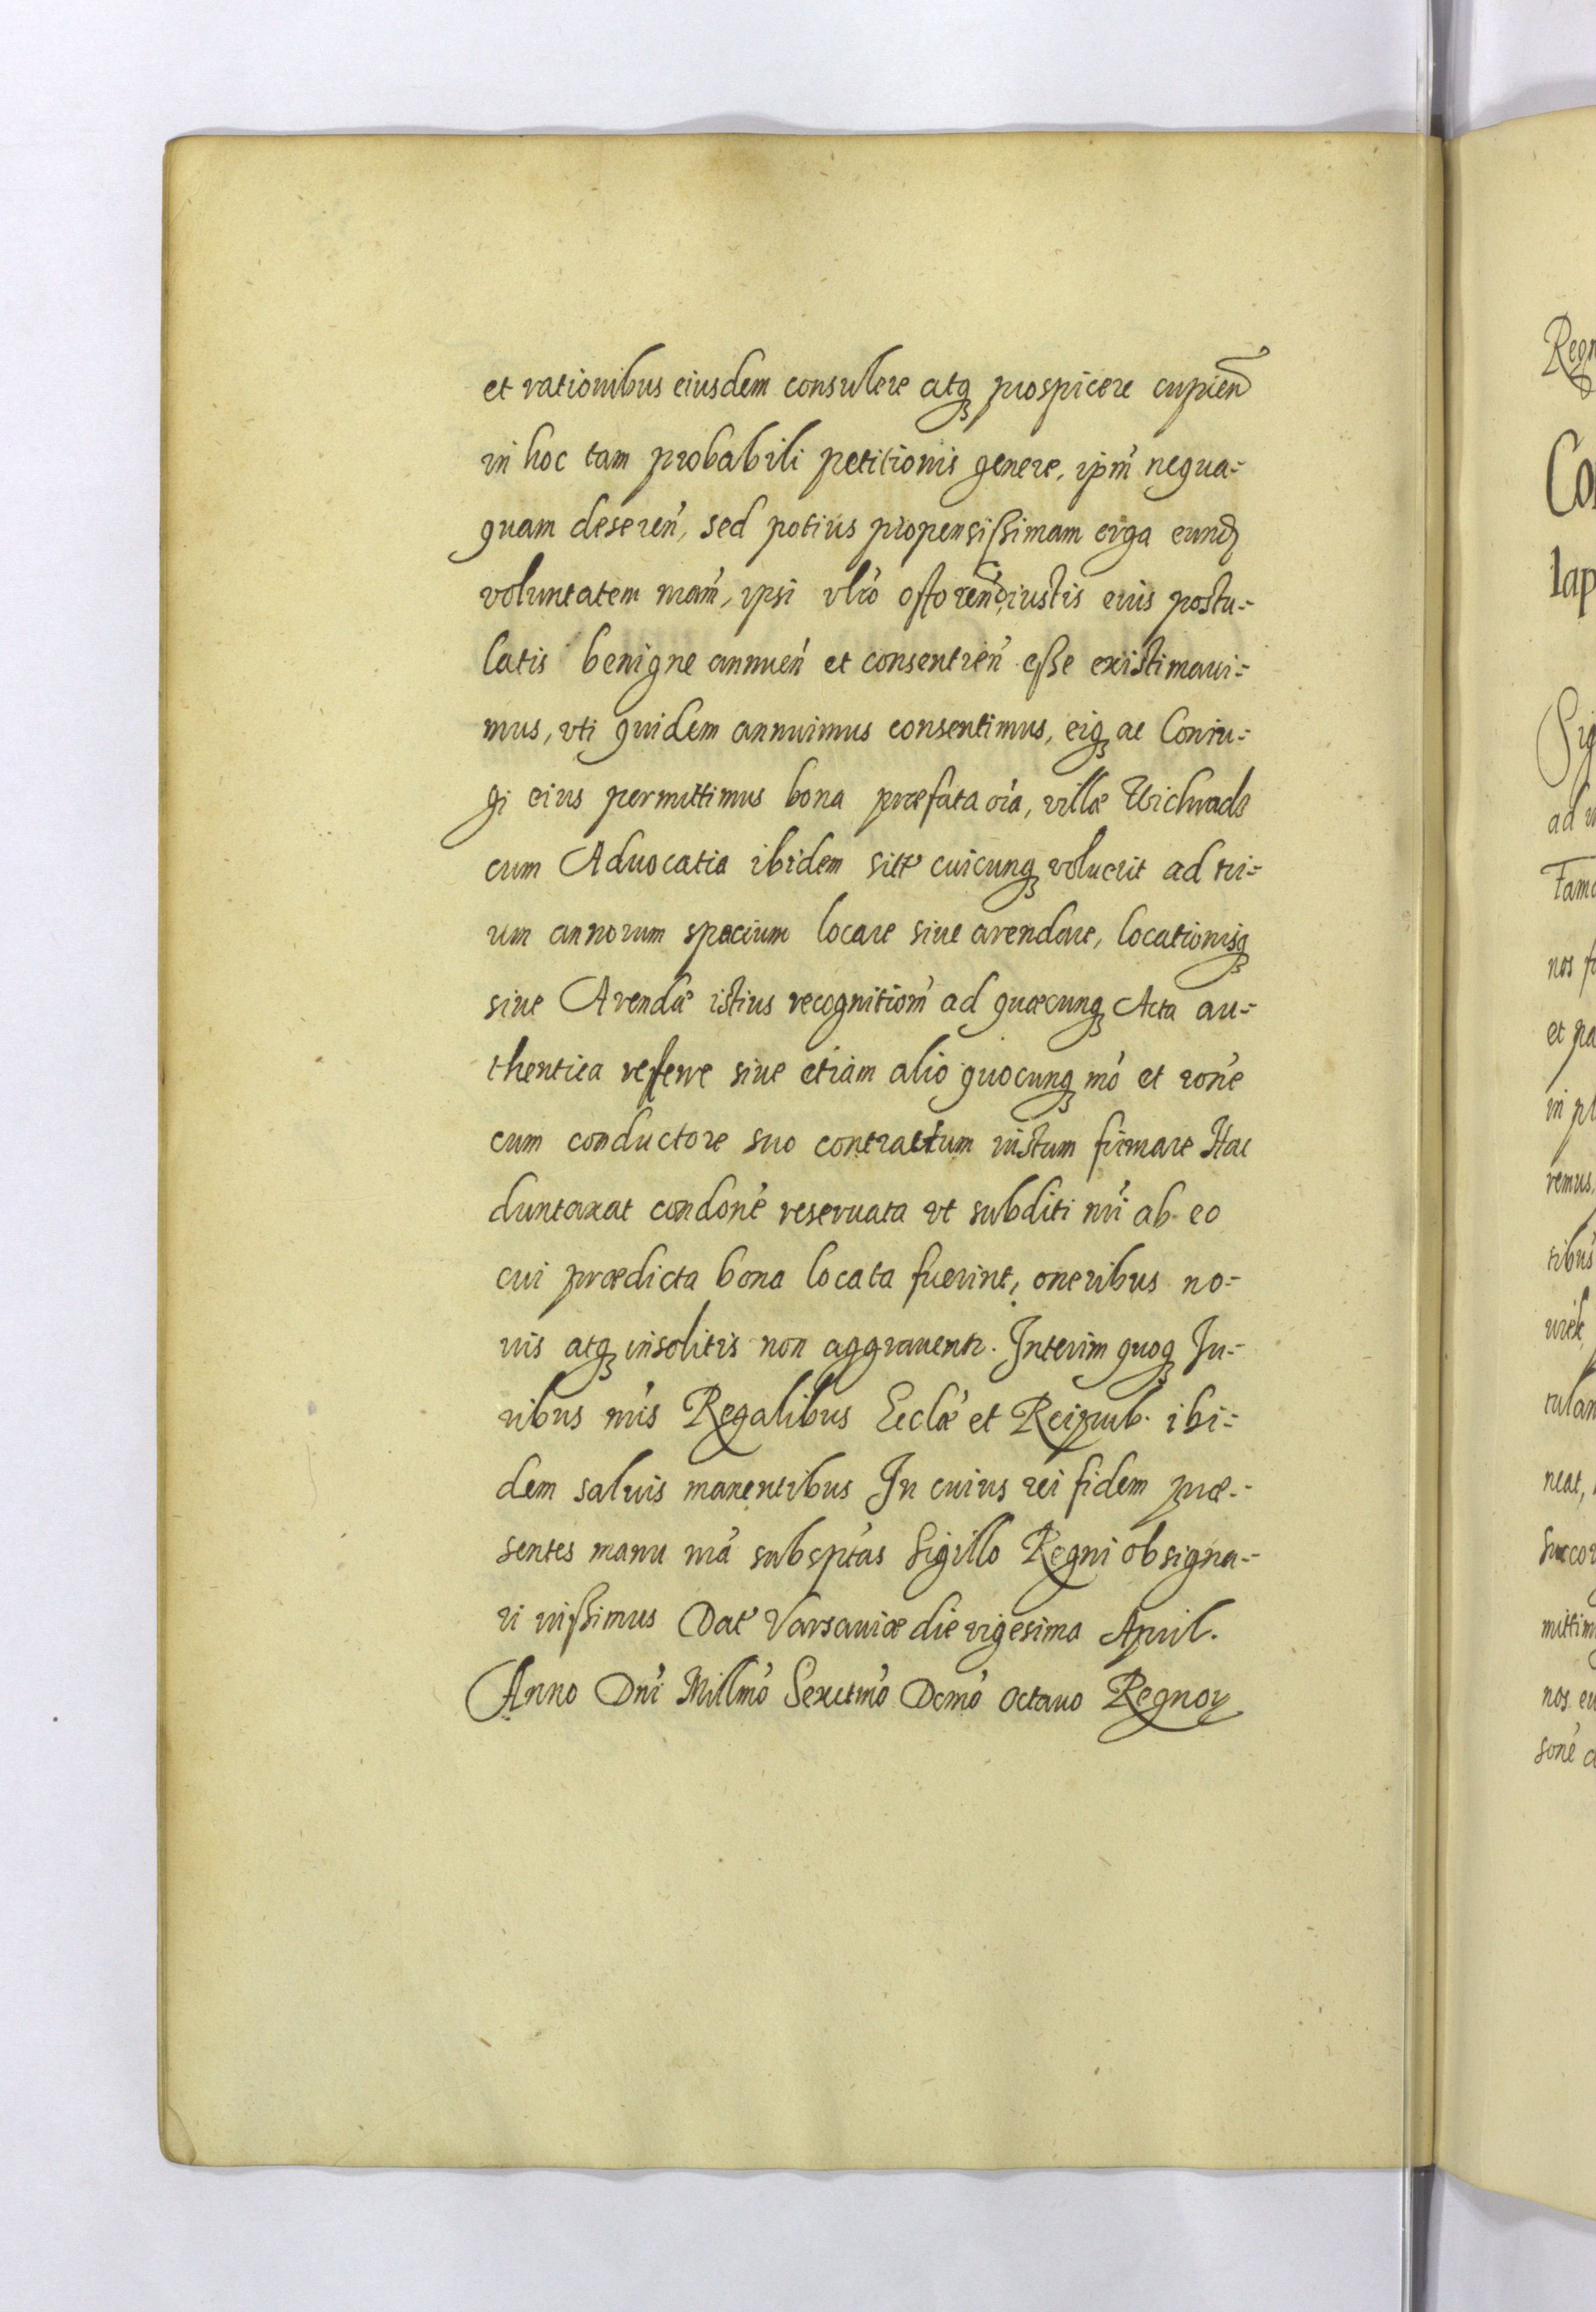 et rationibus eiusdem consulere atq prospicere cupien
in hoc tam probabili petitionis genere, ipm̃ nequa-
quam deseren̄, sed potius propensissimam erga eund
voluntatem nr̃am, ipsi vltrò iustis eius postu-
latis benigne annuen̄ et consentien̄ esse existimaui-
mus, vti quidem annuimus consentimus, eiq ac Coniu-
gi eius permittimus bona præfata oīa, villæ
cum Aduocatia ibidem cuicunq voluerit ad tri-
um annorum spacium locare siue arendare, locationisq
siue Arendæ istius recognitionẽ ad quæcunq Acta au-
thentica referre siue etiam alio quocunq mõ et rõne
cum conductore suo contractum iustum firmare Hac
duntaxat condõne reseruata vt subditi nr̃i ab eo
cui prædicta bona locata fuerint, oneribus no-
uis atq insolitis non aggrauentr. Interim quoq Iu-
ribus nr̃is Regalibus Ecclæ et Reipub. ibi-
dem saluis manentibus In cuius rei fidem præ-
sentes manu nr̃a subsptas Sigillo Regni obsigna-
ri iussimus Dat Varsauiæ die vigesima April.
Anno Dn̄i Millmõ Sexctmõ Dcmõ octauo Regnoꝝ
Regn
Co
lap
Sig
ad
Fam
nos
et pa
in pl
remus
tibus
neat,
Succo
mittim
nos
sone